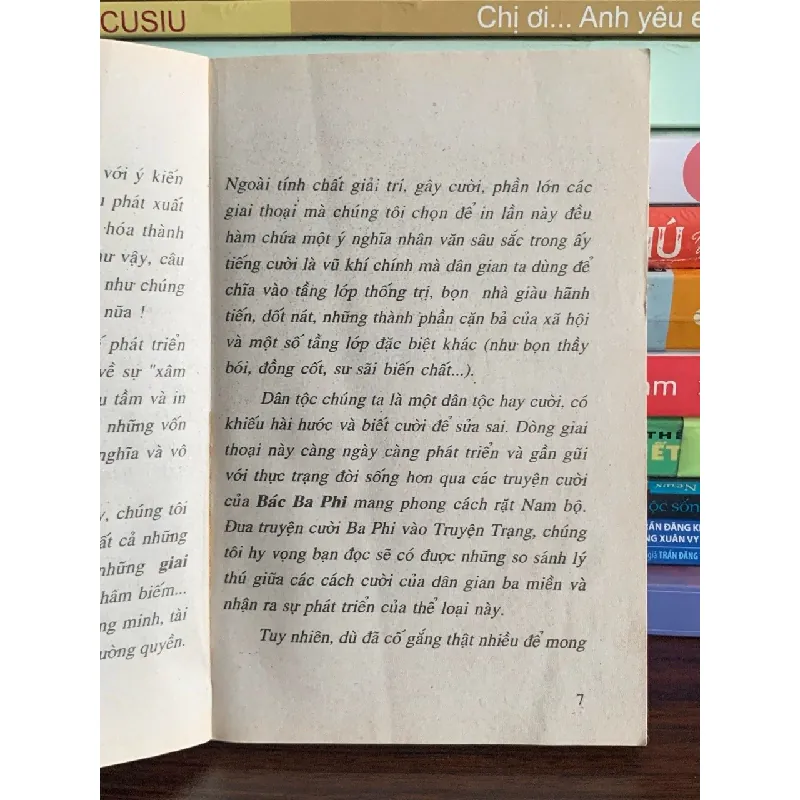 CUSIU
Chị ơi... Anh yêu e
với ý kiến
phát xuất
hóa thành
vậy, câu
như chúng
nữa !
phát triển
về sự "xâm
tầm và in
những vốn
nghĩa và vô
chúng tôi
cả những
những giai
châm biếm...
minh, tài
quyền.
Ngoài tính chất giải trí, gây cười, phần lớn các
giai thoại mà chúng tôi chọn để in lần này đều
hàm chứa một ý nghĩa nhân văn sâu sắc trong ấy
tiếng cười là vũ khí chính mà dân gian ta dùng để
chĩa vào tầng lớp thống trị, bọn nhà giàu hãnh
tiến, dốt nát, những thành phần cặn bả của xã hội
và một số tầng lớp đặc biệt khác (như bọn thầy
bói, đồng cốt, sư sãi biến chất...).
Dân tộc chúng ta là một dân tộc hay cười, có
khiếu hài hước và biết cười để sửa sai. Dòng giai
thoại này càng ngày càng phát triển và gần gũi
với thực trạng đời sống hơn qua các truyện cười
của Bác Ba Phi mang phong cách rặt Nam bộ.
Đưa truyện cười Ba Phi vào Truyện Trạng, chúng
tôi hy vọng bạn đọc sẽ có được những so sánh lý
thú giữa các cách cười của dân gian ba miền và
nhận ra sự phát triển của thể loại này.
Tuy nhiên, dù đã cố gắng thật nhiều để mong
7
THẾ
ẾT
News
ộc sống
TRẦN ĐĂNG K
NG XUÂN VY
giả TRẦN ĐĂNG